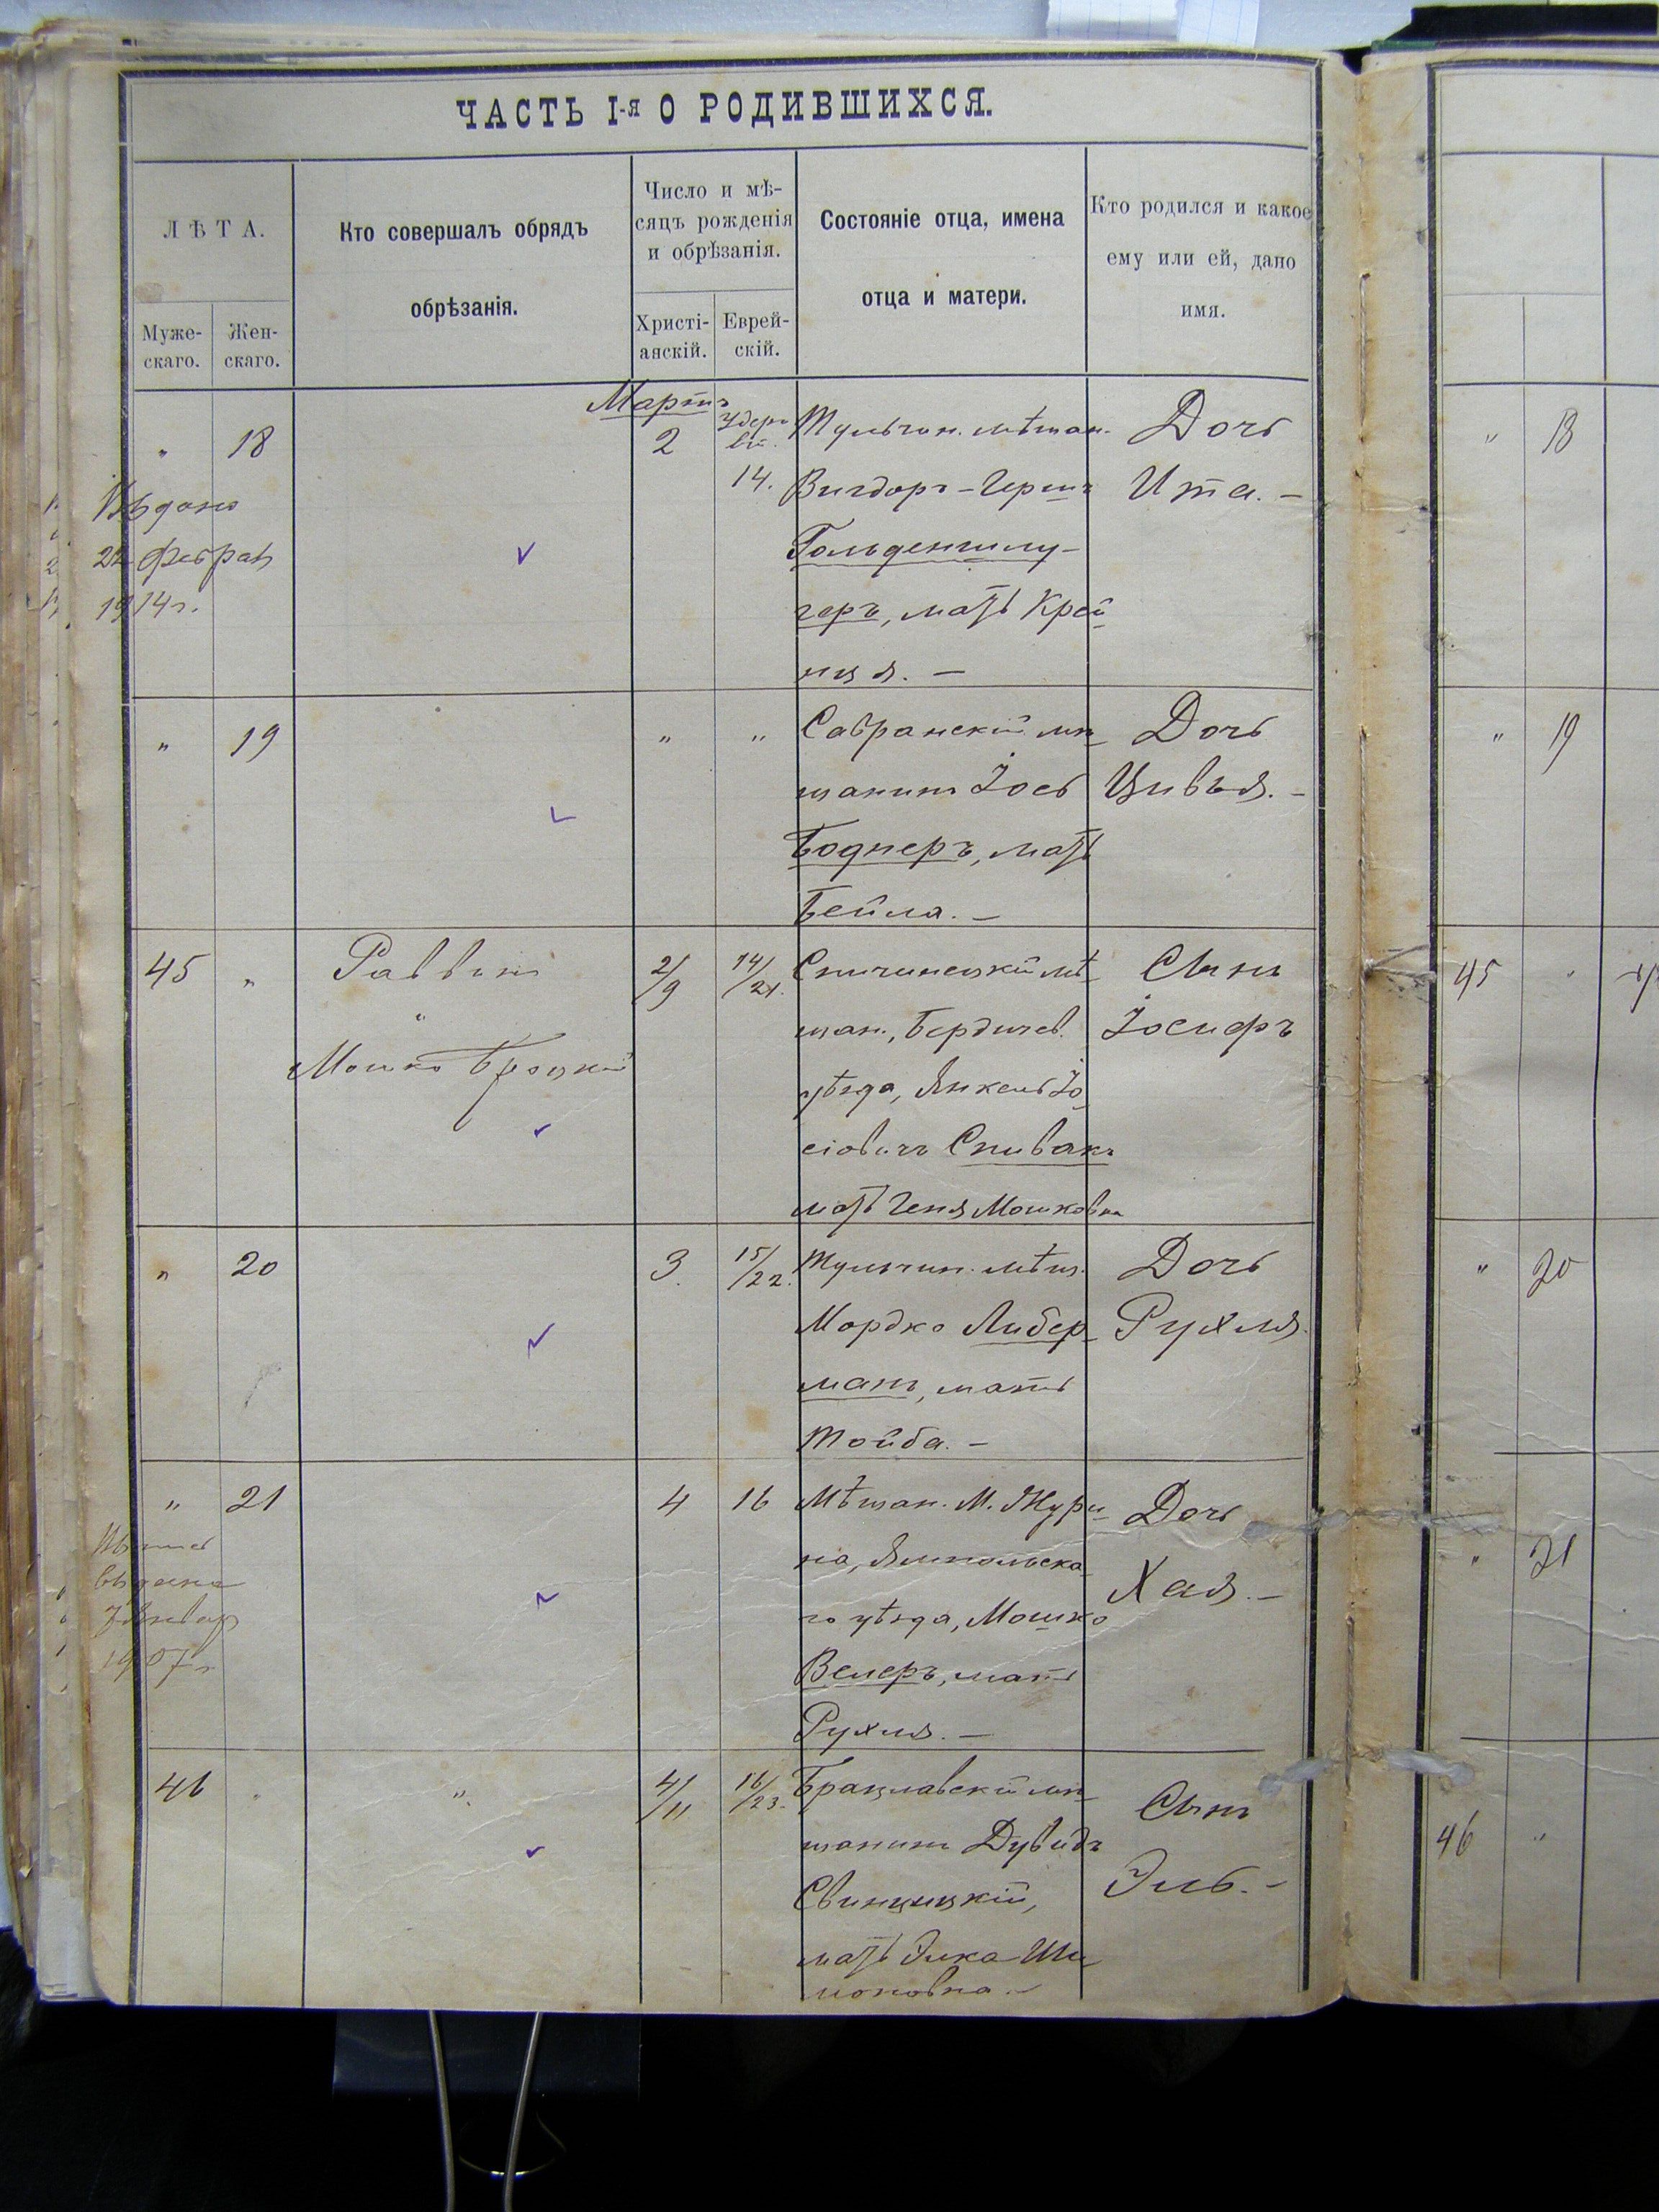 ЧАСТЬ I-я О РОДИВШИХСЯ.
ЛѢТА.
Муже-
скаго.
Жен-
скаго.
Кто совершалъ обрядъ
обрѣзанія.
Число и мѣ-
сяцъ рожденія
и обрѣзанія.
Христі-
анскій.
Еврей-
скій.
Состояніе отца, имена
отца и матери.
Кто родился и какое
ему или ей, дано
имя.
Мартъ
" 18
2
14.
Тульчин. мѣщан.
Вигдоръ-Герш
Гольденшлу-
геръ, мать Крей
нця. —
Дочь
Ита. —
22 Феврал
1914 г.
" 19
" "
Савранскій мѣ
щанинъ Іось
Боднеръ, мать
Бейла. —
Дочь
Цивья. —
45 "
Раввинъ
"
Мошко Броцкій
2/9
14/21.
Спичинецкій мѣ
щан., Бердичев.
уѣзда, Янкель Іо
сіовичъ Спивакъ
мать Геня Мошковна
Сынъ
Іосифъ
" 20
3.
15/22.
Тульчин. мѣщ.
Мордко Либер
манъ, мать
Тойба. —
Дочь
Рухля.
" 21
4 16
Мѣщан. М. Жури
на, Ямпольска
го уѣзда, Мошко
Велеръ, мать
Рухля. —
Дочь
Хая. —
выдана
7 Январ
1907 г.
46 "
".
4/11
16/23.
Брацлавскій мѣ
щанинъ Дувидъ
Свинцицкій,
мать Элка Ши
моновна. —
Сынъ
Эль. —
" 18
" 19
45 "
" 20
" 21
46 "